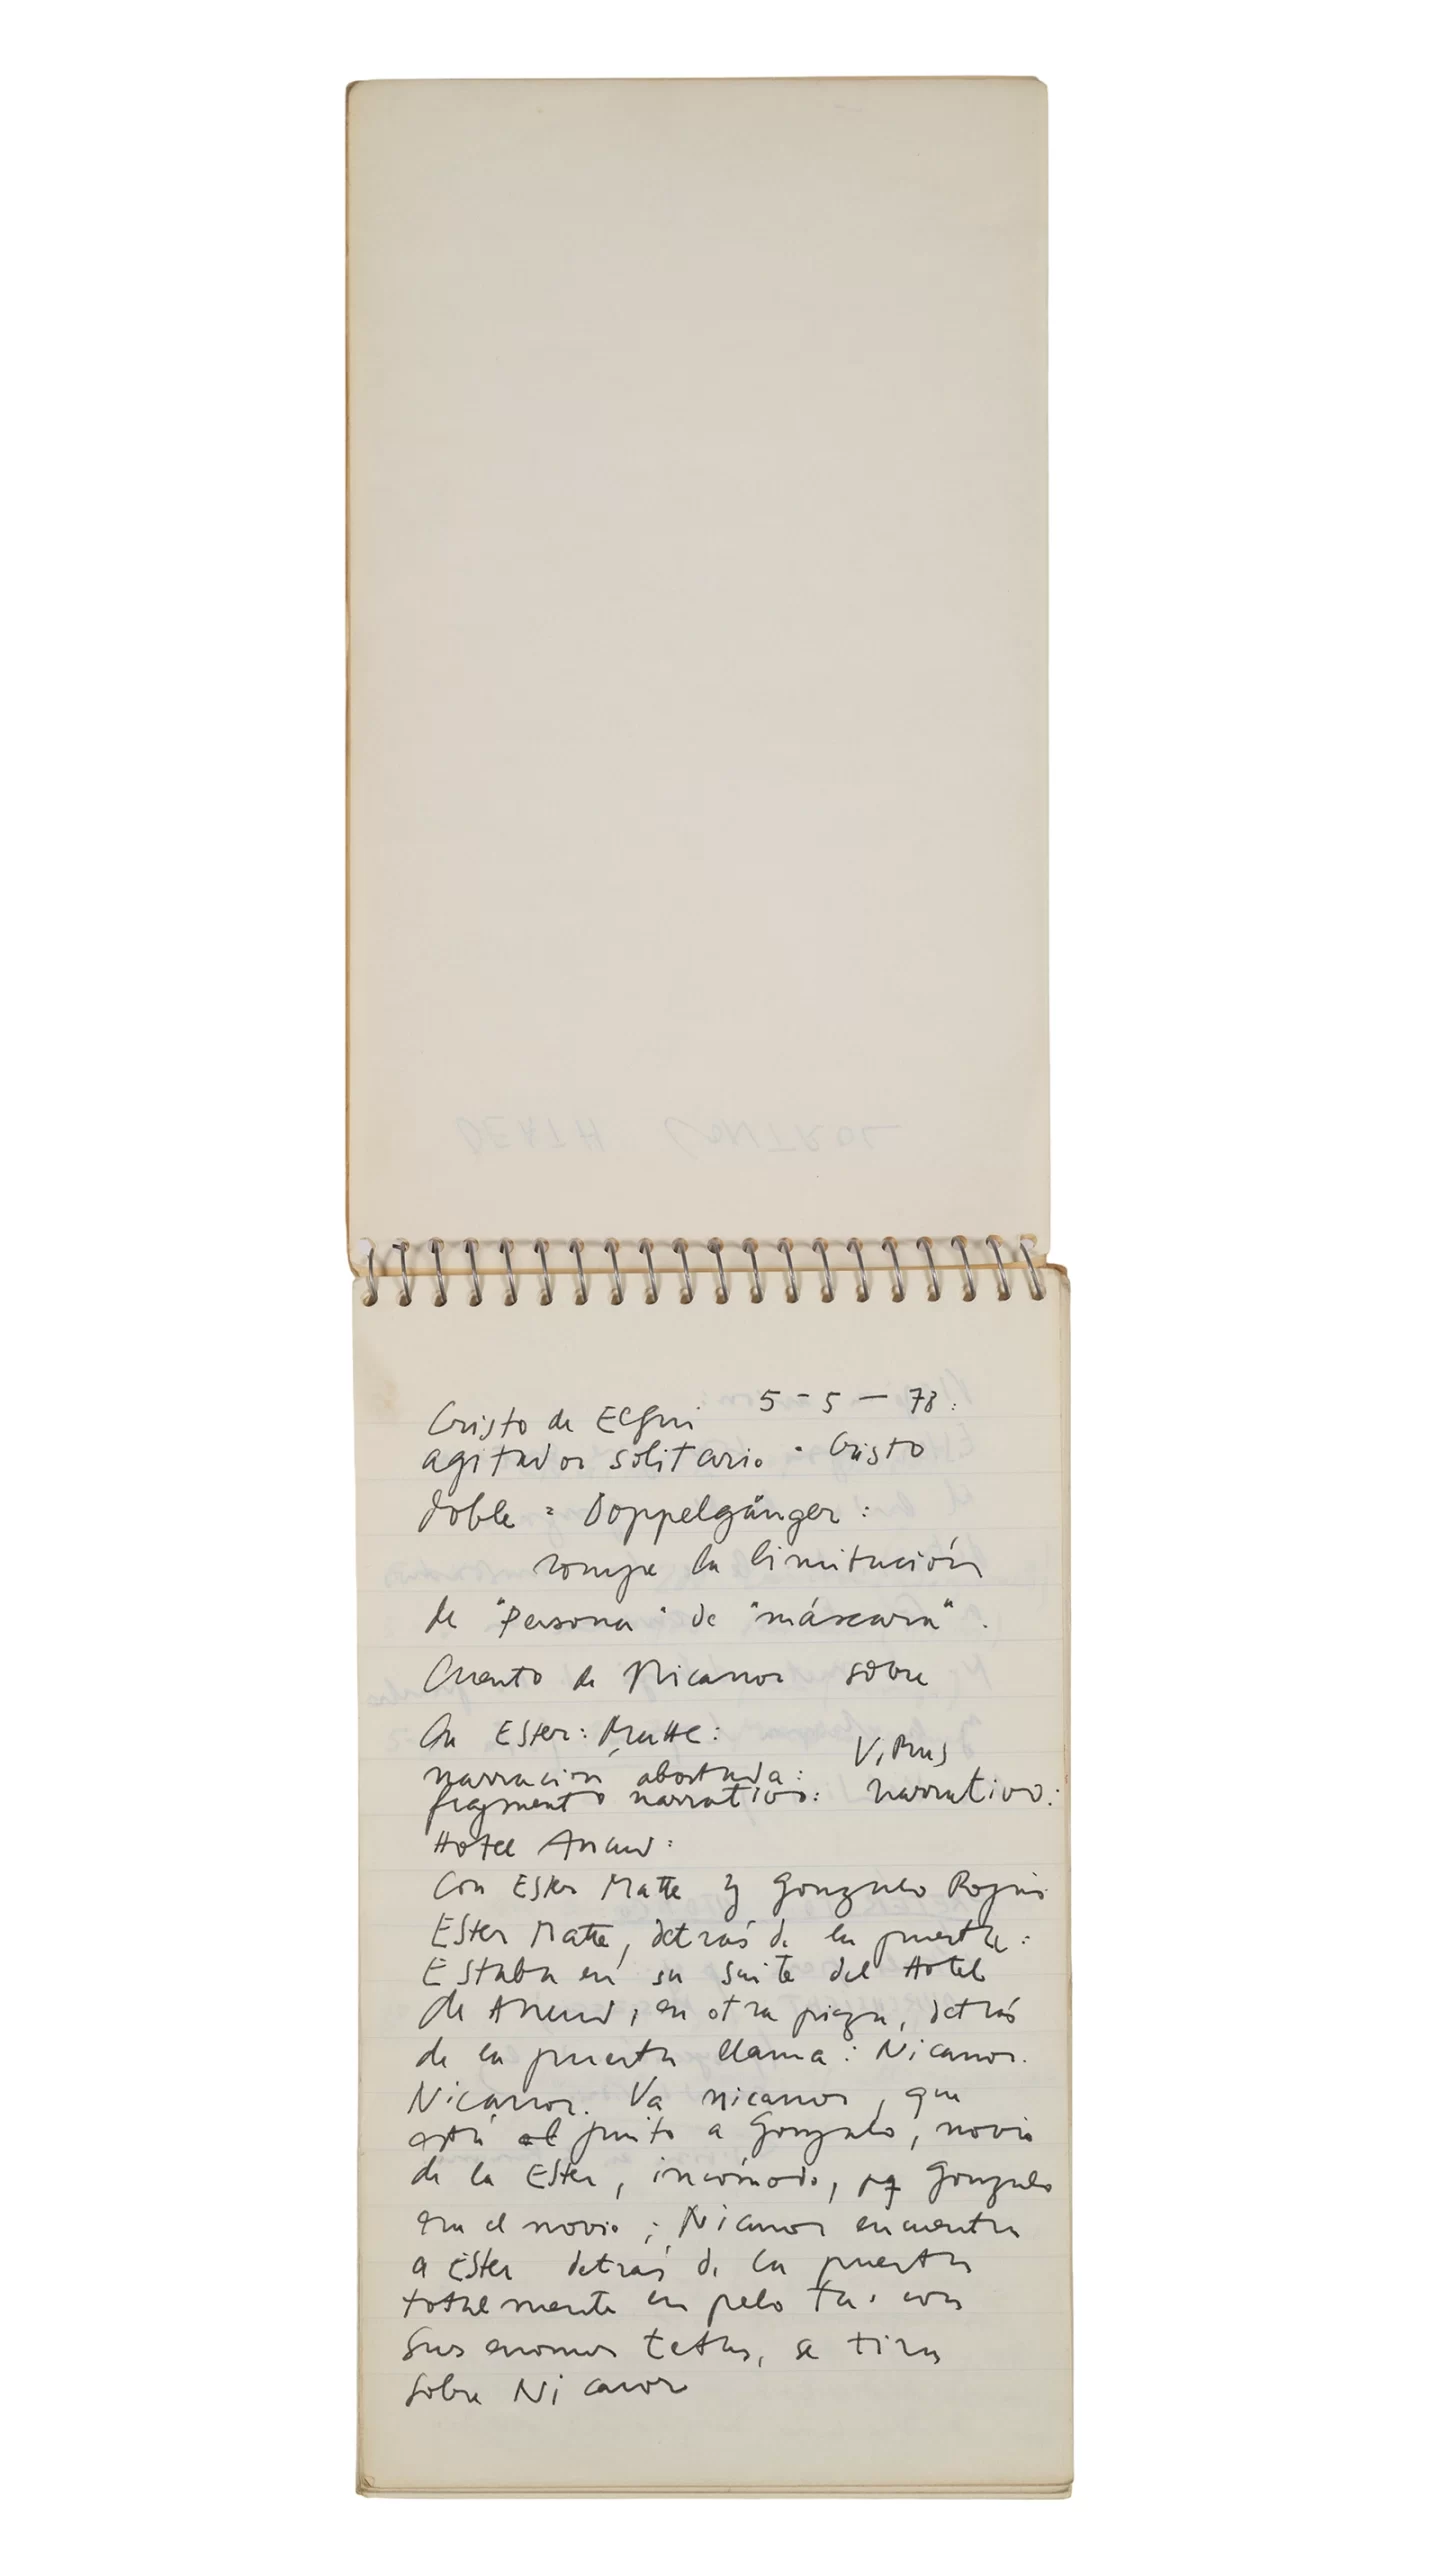 5 - 5 - 78.
Cristo de Elqui
agitador solitario. Cristo
doble = Doppelgänger:
rompe la limitación
de "Persona" de "máscara".
Cuento de Nicanor sobre
la Ester: Matte:
narración abortada: Virus
fragmento narrativo: narrativo:
Hotel Ancud:
Con Ester Matte y Gonzalo Rojas
Ester Matte, detrás de la puerta:
Estaba en su suite del Hotel
de Ancud, en otra pieza, detrás
de la puerta llama: Nicanor.
Nicanor. Va nicanor, que
está al junto a Gonzalo, novio
de la Ester, incómodo, pq Gonzalo
era el novio; Nicanor encuentra
a Ester detrás de la puerta
totalmente en pelota. con
sus enormes tetas, se tira
sobre Nicanor